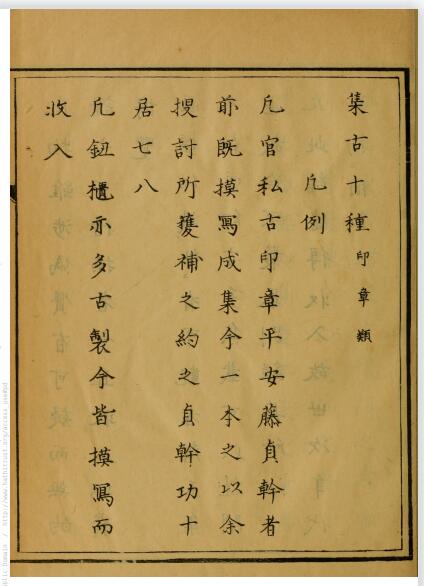 集古十種 印章類
凡例
凡官私古印章平安藤貞幹者
前既摸寫成集今一本之以余
搜討所獲補之約之貞幹功十
居七八
凡鈕櫃亦多古製今皆摸寫而
收入
Domain / http://www.hathitrust.org/access_use#pd